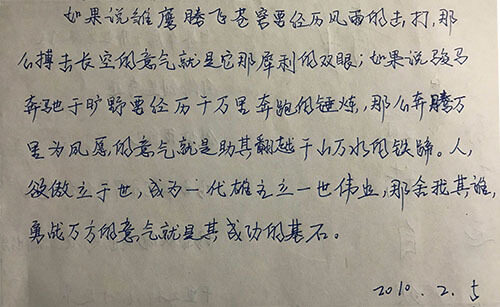 如果说雏鹰腾飞苍穹要经历风雨的击打,那
么搏击长空的意气就是它那犀利的双眼;如果说骏马
奔驰于旷野要经历千万里奔跑的锤炼,那么奔腾万
里为风愿的意气就是助其翻越千山万水的铁蹄。人,
欲傲立于世,成为一代雄主立一世伟业,那舍我其谁,
勇战万方的意气就是其成功的基石。
2010.2.5